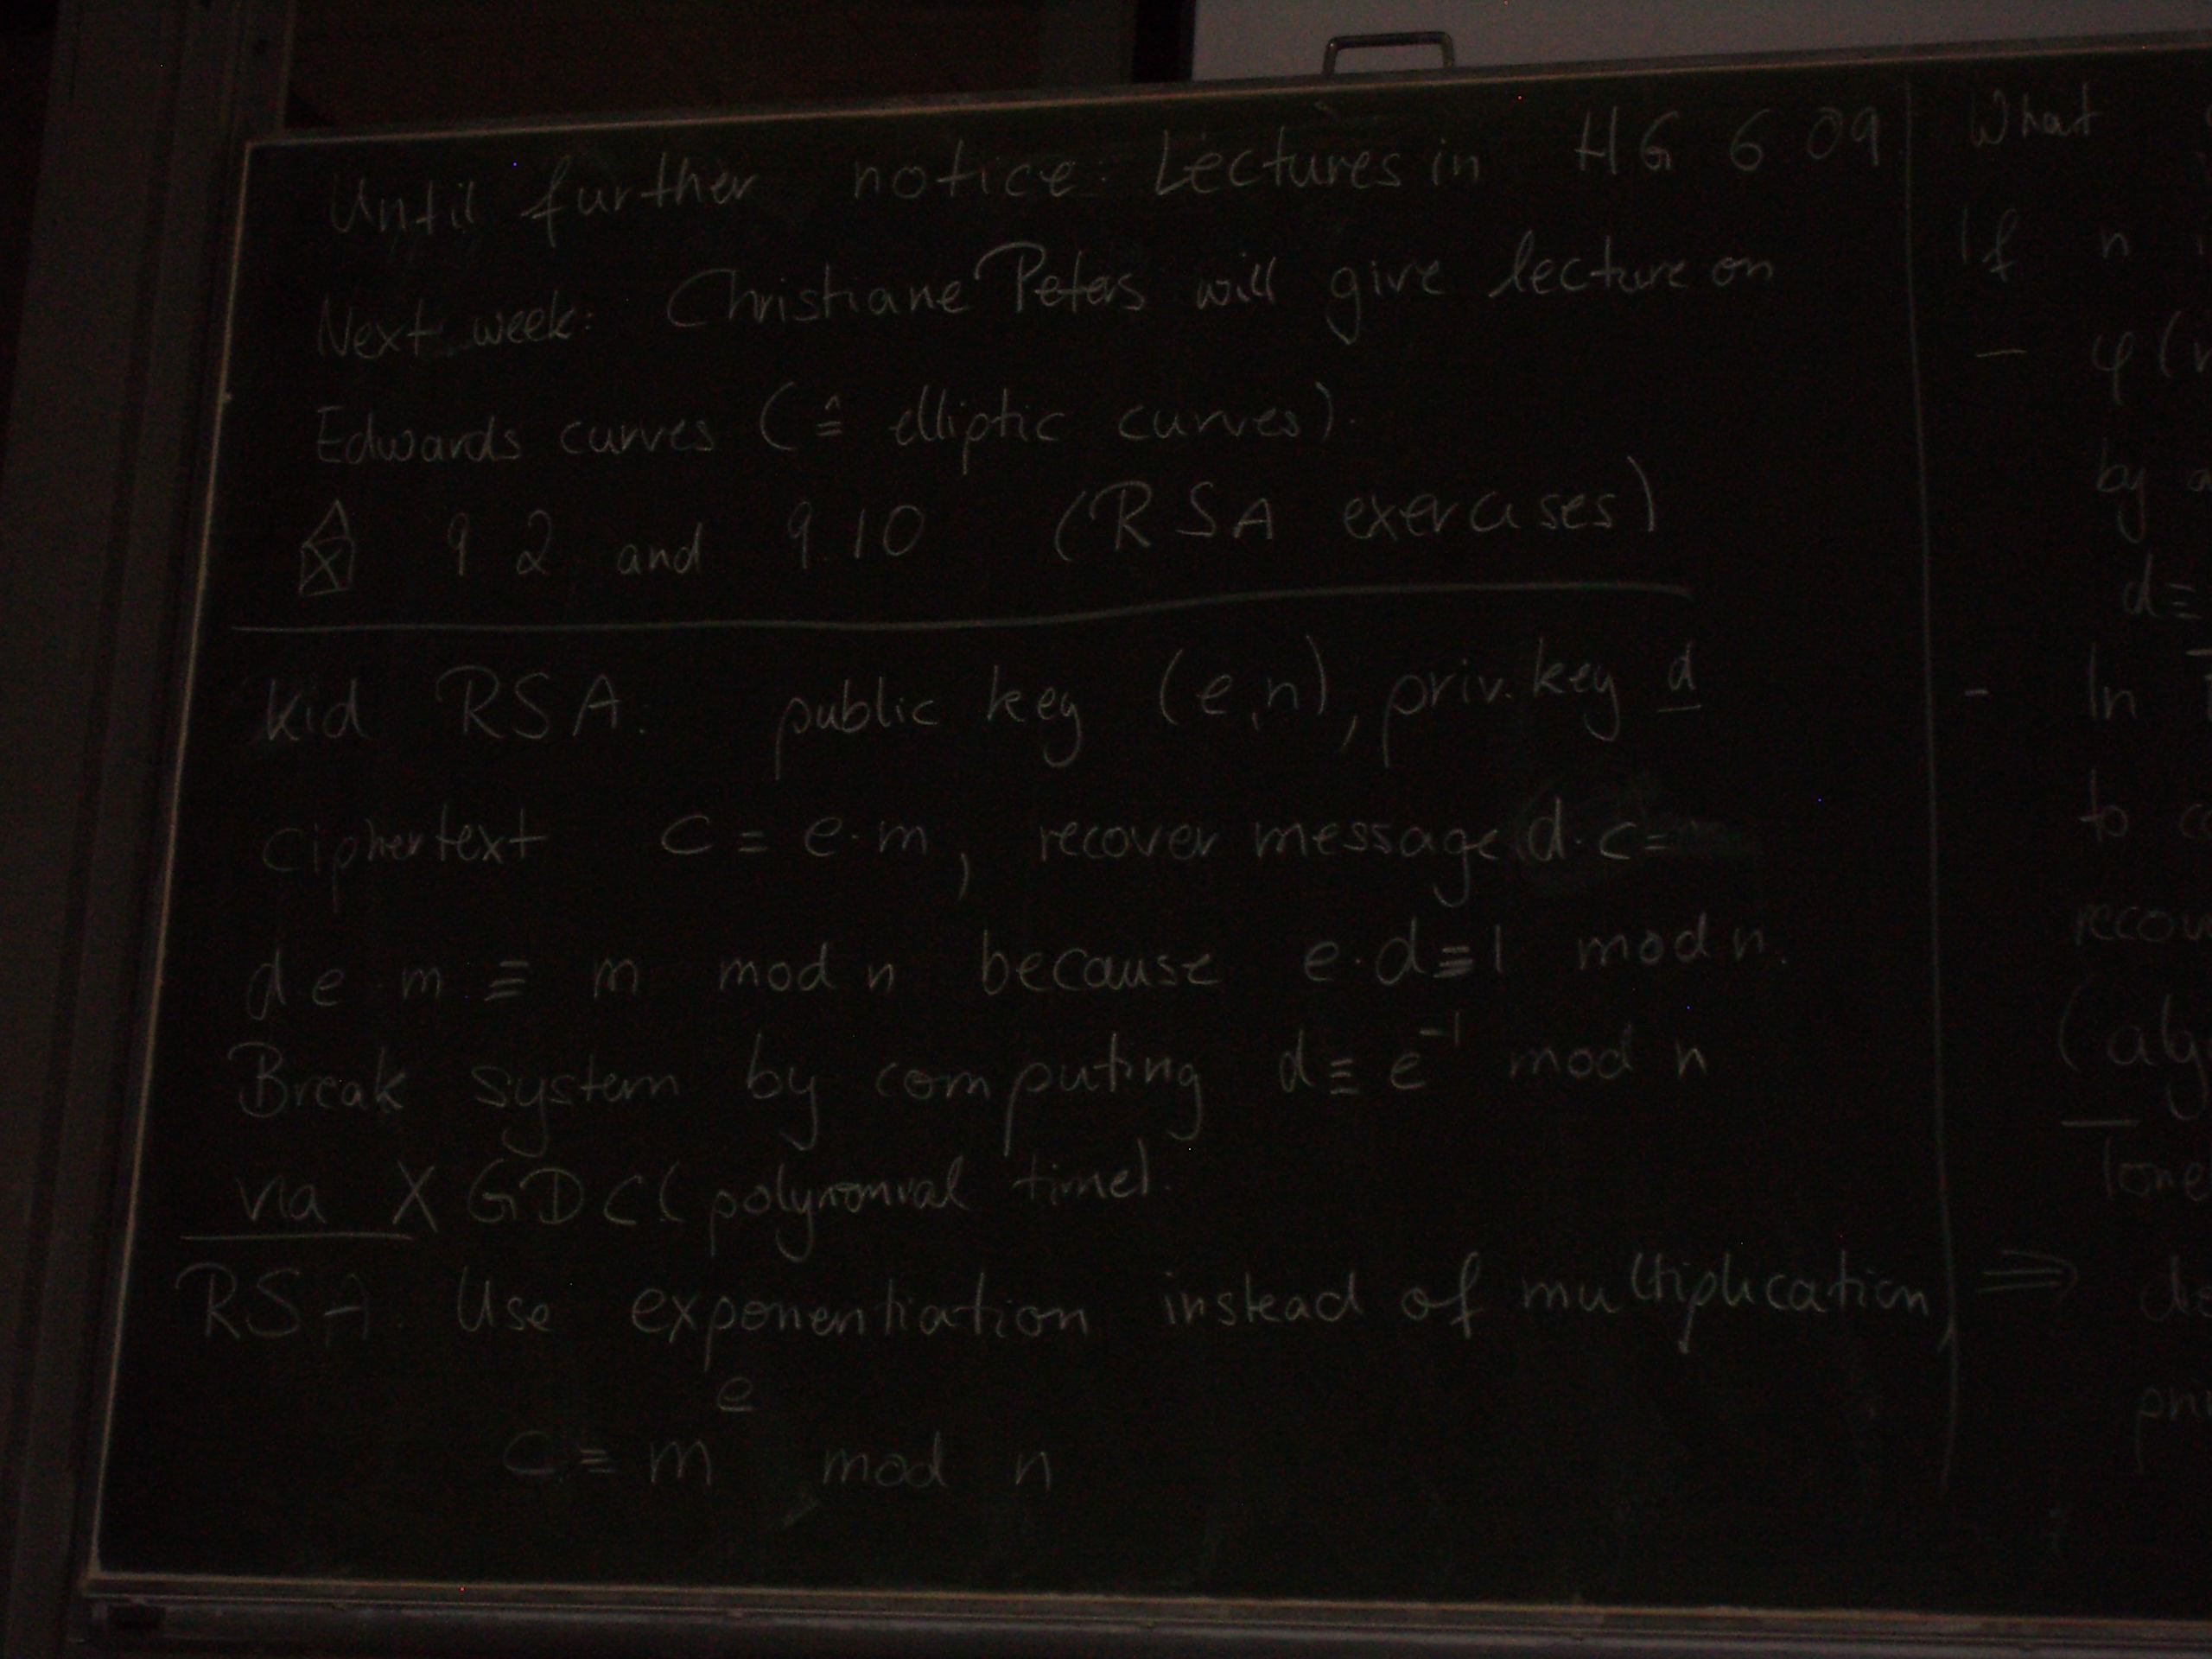 Until further notice: Lectures in HG 6.09
Next week: Christiane Peters will give lecture on
Edwards curves (≙ elliptic curves).
9.2 and 9.10 (RSA exercises)
kid RSA: public key (e,n), priv. key d
ciphertext c = e·m, recover message d·c=
d·e·m ≡ m mod n because e·d≡1 mod n.
Break system by computing d≡ e⁻¹ mod n
via XGDC (polynomial time).
RSA: Use exponentiation instead of multiplication,
c ≡ m^e mod n
What
If n
- φ(
by
d≡
- In
to
recov
(alg
⇒